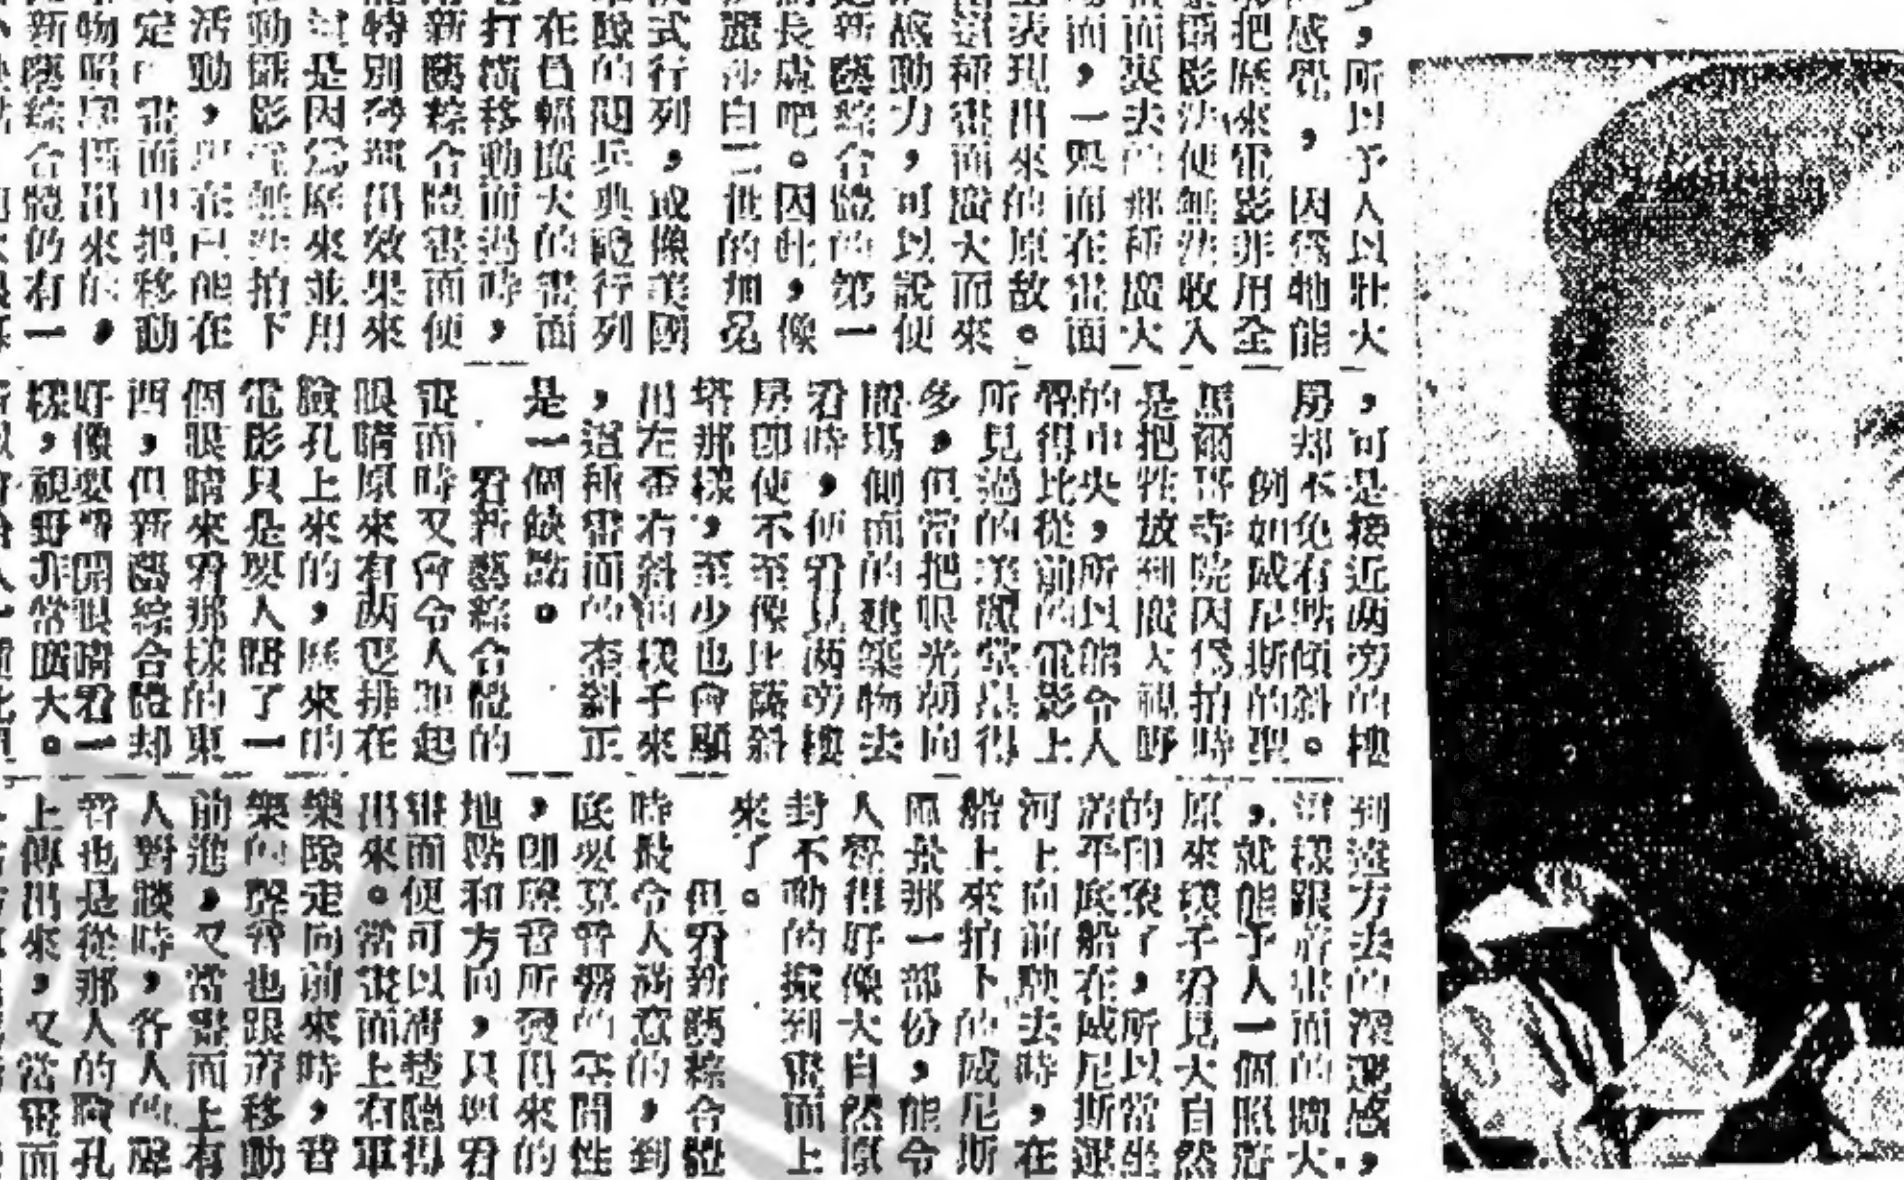 ，所以予人以壯大
感覺，因爲牠能
把歷來電影非用全
攝影法便無法收入
而裏去的那種廣大
面，一而在畫面
表現出來的原故。
這種畫面擴大而來
感動力，可以說便
新藝綜合體的第一
長成吧。因此，像
麗沙白二世的加冕
式行列，或像美國
隊的閱兵典禮行列
在包輻廣大的畫面
打橫移動而過時，
新藝綜合體畫面便
特別發揮出效果來
是因爲歷來並用
動攝影從無法拍下
活動，現在已能在
定「畫面中把移動
物照描出來的，
新藝綜合體的有一
，可是接近兩旁的樓
房却不免有點傾斜。
例如威尼斯的聖
馬爾谷寺院因爲拍時
是把牠放到廣大視野
的中央，所以能令人
覺得比從前的電影上
所見過的美麗堂皇得
多，但當把眼光朝向
廣場側面的建築物去
看時，便看見兩旁樓
房即使不至像比薩斜
塔那樣，至少也會顯
出左歪右斜的樣子來
，這種畫面的歪斜正
是一個缺點。
看新藝綜合體的
畫面時又會令人想起
眼睛原來有兩隻排在
臉孔上來的，歷來的
電影只是要人瞎了一
個眼睛來看那樣的東
西，但新藝綜合體却
好像要睜開眼睛看一
樣，視野非常廣大。
到遠方去的深邃感，
這樣跟着畫面的擴大
，就能予人一個照着
原來樣子看見大自然
的印象了，所以當坐
着平底船在威尼斯運
河上向前駛去時，在
船上來拍下的威尼斯
風景那一部份，能令
人覺得好像大自然原
封不動的搬到畫面上
來了。
但看新藝綜合體
時最令人滿意的，到
底要算音響的空間性
，即聲音所發出來的
地點和方向，只要看
畫面便可以清楚聽得
出來。當畫面上有軍
樂隊走向前來時，音
樂的聲音也跟着移動
前進，又當畫面上有
人對談時，各人的聲
音也是從那人的臉孔
上傳出來，又當畫面